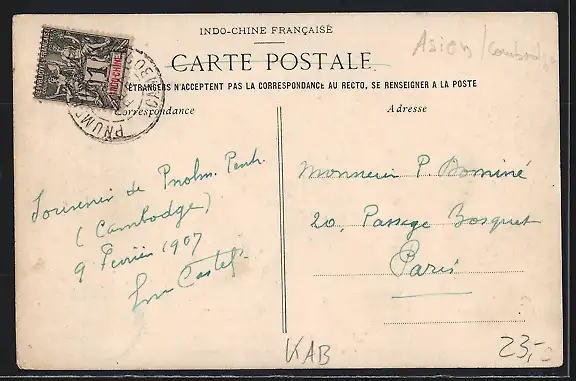 INDO-CHINE FRANÇAISE
CARTE POSTALE
ÉTRANGERS N'ACCEPTENT PAS LA CORRESPONDANCE AU RECTO, SE RENSEIGNER A LA POSTE
Correspondance
Adresse
Asien / Cambodge
1
INDO-CHINE
Souvenir de Pnohm. Penh.
(Cambodge)
9 Février 1907
Monsieur P. Bominé
20, Passage Bosquet
Paris
KAB
23,-